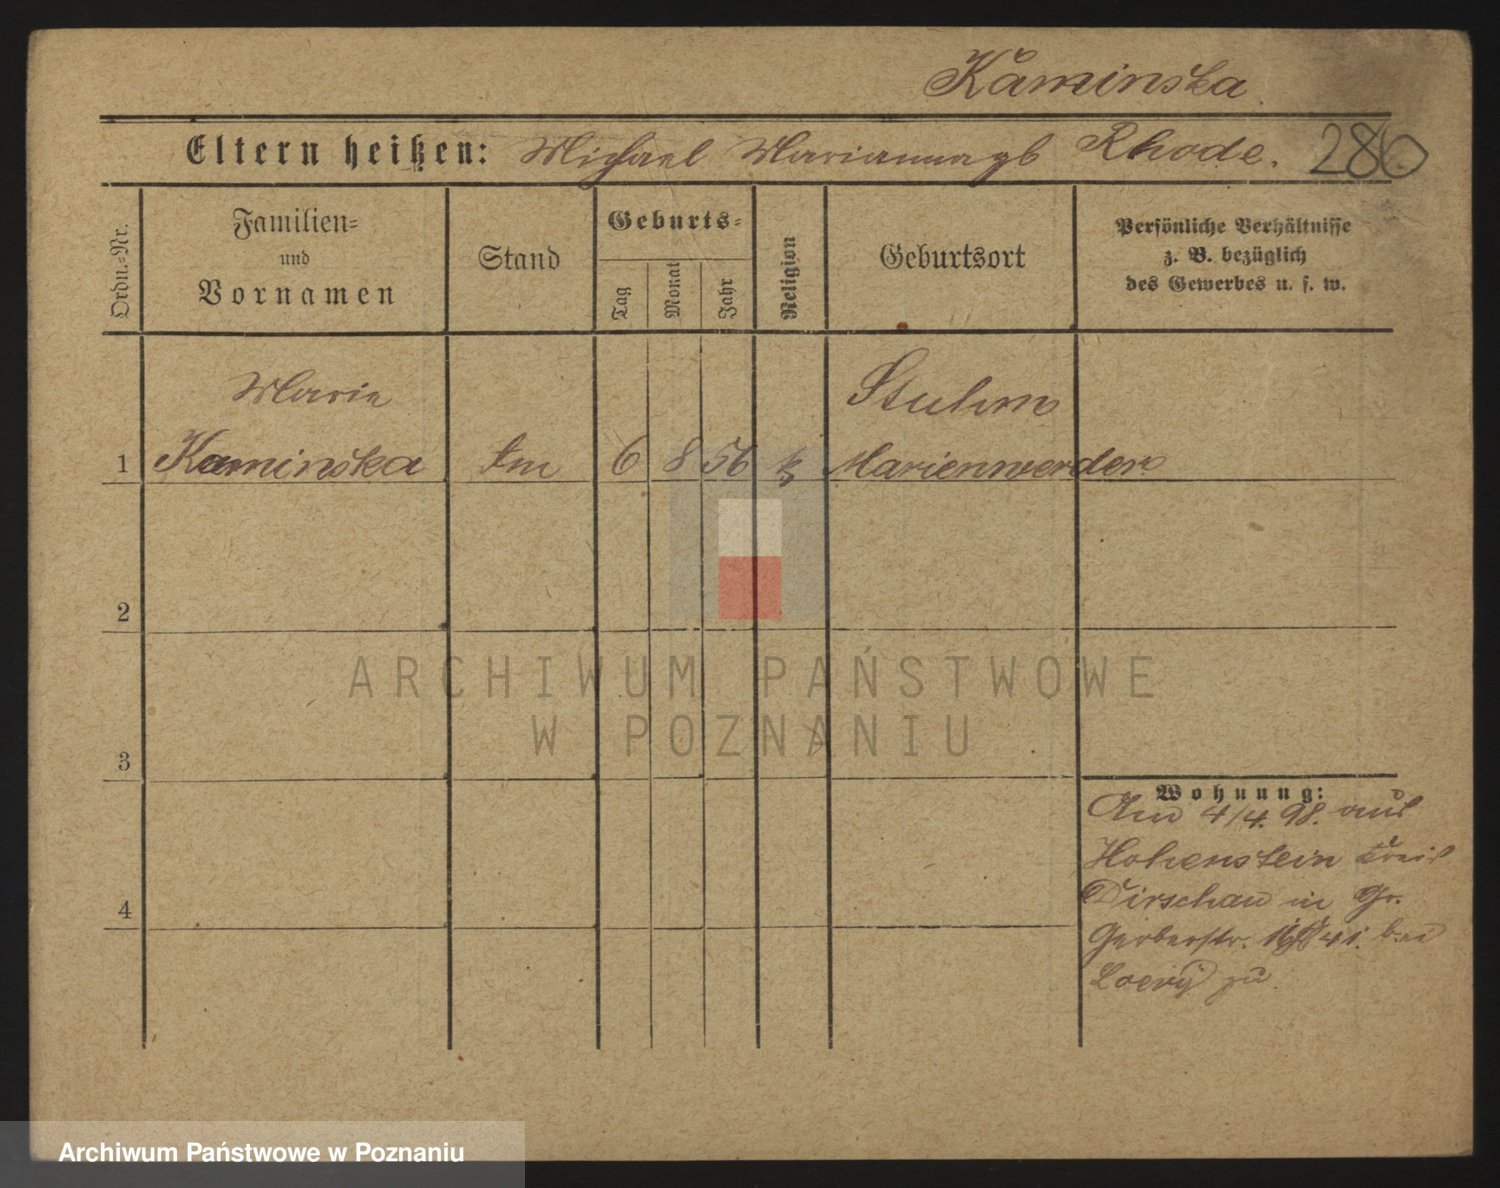 Kaminska
Eltern heißen: Michael Marianna gb Rhode. 280
Ordn.-Nr.
Familien-
und
Vornamen
Stand
Geburts-
Tag
Monat
Jahr
Religion
Geburtsort
Persönliche Verhältnisse
z. B. bezüglich
des Gewerbes u. s. w.
Marie
Stuhm
1 Kaminska 6 8 56 k Marienwerder
2
ARCHIWUM PAŃSTWOWE
W POZNANIU
3
Wohnung:
Am 4/4. 98. aus
Hohenstein Kreis
Dirschau in Gr.
4
Gerberstr. 41. bei
Loevÿ zu
Archiwum Państwowe w Poznaniu